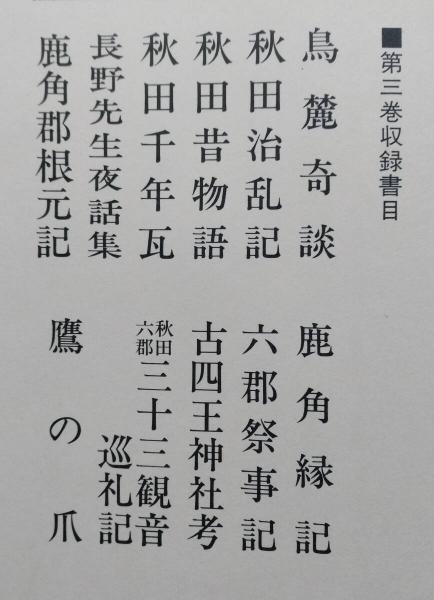 ■第三巻収録書目
鳥麓奇談
秋田治乱記
秋田昔物語
秋田千年瓦
長野先生夜話集
鹿角郡根元記
鹿角縁記
六郡祭事記
古四王神社考
秋田六郡三十三観音
巡礼記
鷹の爪